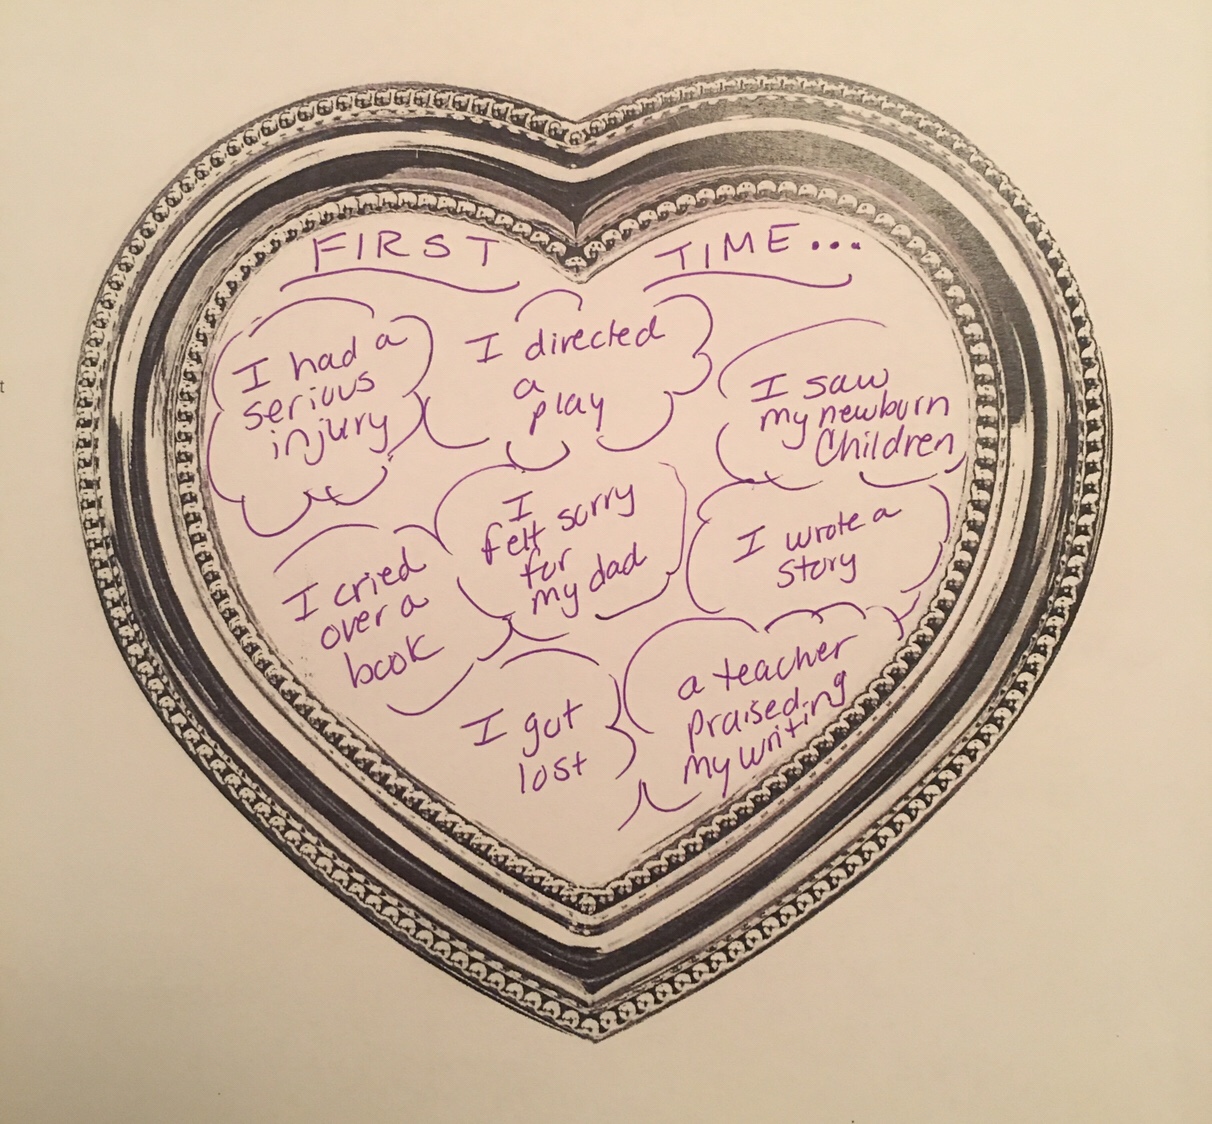 FIRST TIME...
I had a
serious
injury
I directed
a
play
I saw
my newborn
Children
I cried
over a
book
I
felt sorry
for
my dad
I wrote a
story
I got
lost
a teacher
praised
my writing